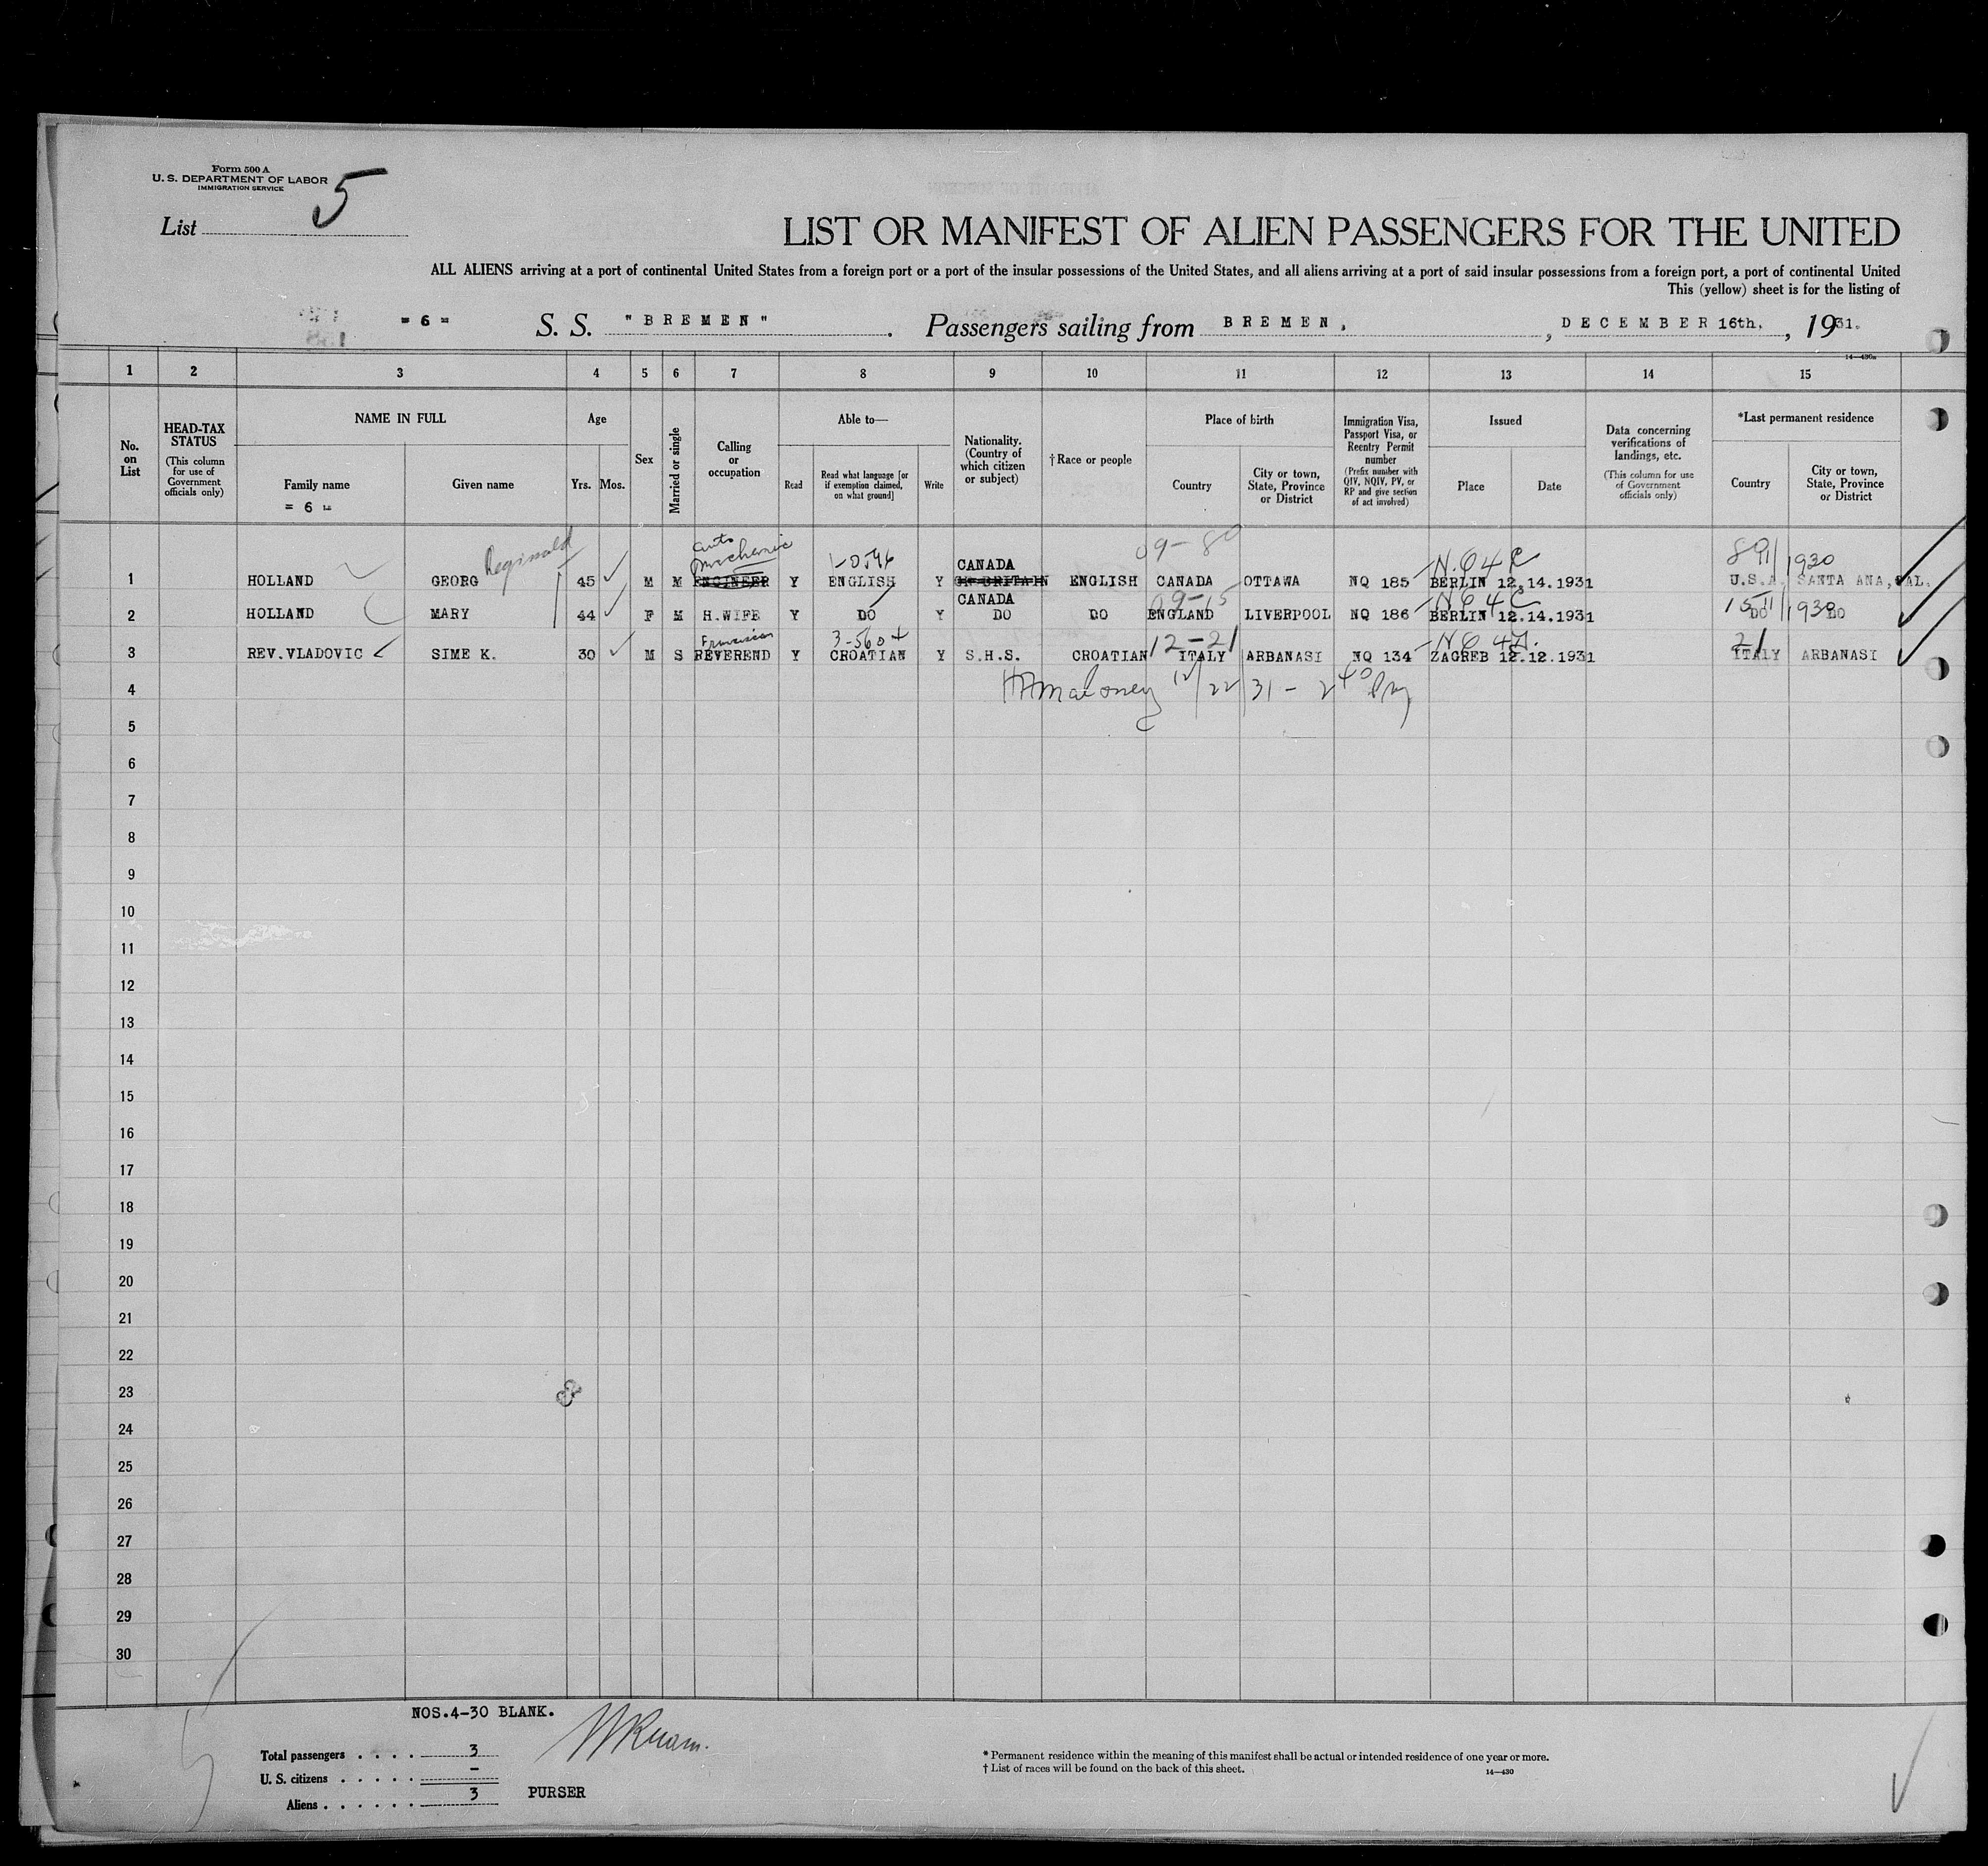 Form 500 A
U. S. DEPARTMENT OF LABOR
IMMIGRATION SERVICE
List 5
LIST OR MANIFEST OF ALIEN PASSENGERS FOR THE UNITED
ALL ALIENS arriving at a port of continental United States from a foreign port or a port of the insular possessions of the United States, and all aliens arriving at a port of said insular possessions from a foreign port, a port of continental United
This (yellow) sheet is for the listing of
= 6 = S. S. "BREMEN". Passengers sailing from BREMEN, , DECEMBER 16th. , 1931.
14—430a
1 2 3 4 5 6 7 8 9 10 11 12 13 14 15
No. on List
HEAD-TAX STATUS (This column for use of Government officials only)
NAME IN FULL
Family name
= 6 =
Given name
Age
Yrs. Mos.
Sex
Married or single
Calling or occupation
Able to—
Read
Read what language [or if exemption claimed, on what ground]
Write
Nationality. (Country of which citizen or subject)
†Race or people
Place of birth
Country
City or town, State, Province or District
Immigration Visa, Passport Visa, or Reentry Permit number (Prefix number with QIV, NQIV, PV, or RP and give section of act involved)
Issued
Place
Date
Data concerning verifications of landings, etc. (This column for use of Government officials only)
*Last permanent residence
Country
City or town, State, Province or District
Reginald auto mechanic CANADA 09-80 1930
1 HOLLAND GEORG 45 M M ENGINEER Y ENGLISH Y GR BRITAIN ENGLISH CANADA OTTAWA NQ 185 BERLIN 12.14.1931 U.S.A. SANTA ANA, CAL.
CANADA 09-15 1930
2 HOLLAND MARY 44 F M H.WIFE Y DO Y DO DO ENGLAND LIVERPOOL NQ 186 BERLIN 12.14.1931 DO DO
Franciscan 12-21 21
3 REV.VLADOVIC SIME K. 30 M S REVEREND Y CROATIAN Y S.H.S. CROATIAN ITALY ARBANASI NQ 134 ZAGREB 12.12.1931 ITALY ARBANASI
4 Maloney 12/22/31
5
6
7
8
9
10
11
12
13
14
15
16
17
18
19
20
21
22
23
24
25
26
27
28
29
30
NOS.4-30 BLANK.
Total passengers . . . . 3
U. S. citizens . . . . . -
Aliens . . . . . . 3
PURSER
* Permanent residence within the meaning of this manifest shall be actual or intended residence of one year or more.
† List of races will be found on the back of this sheet.
14—430